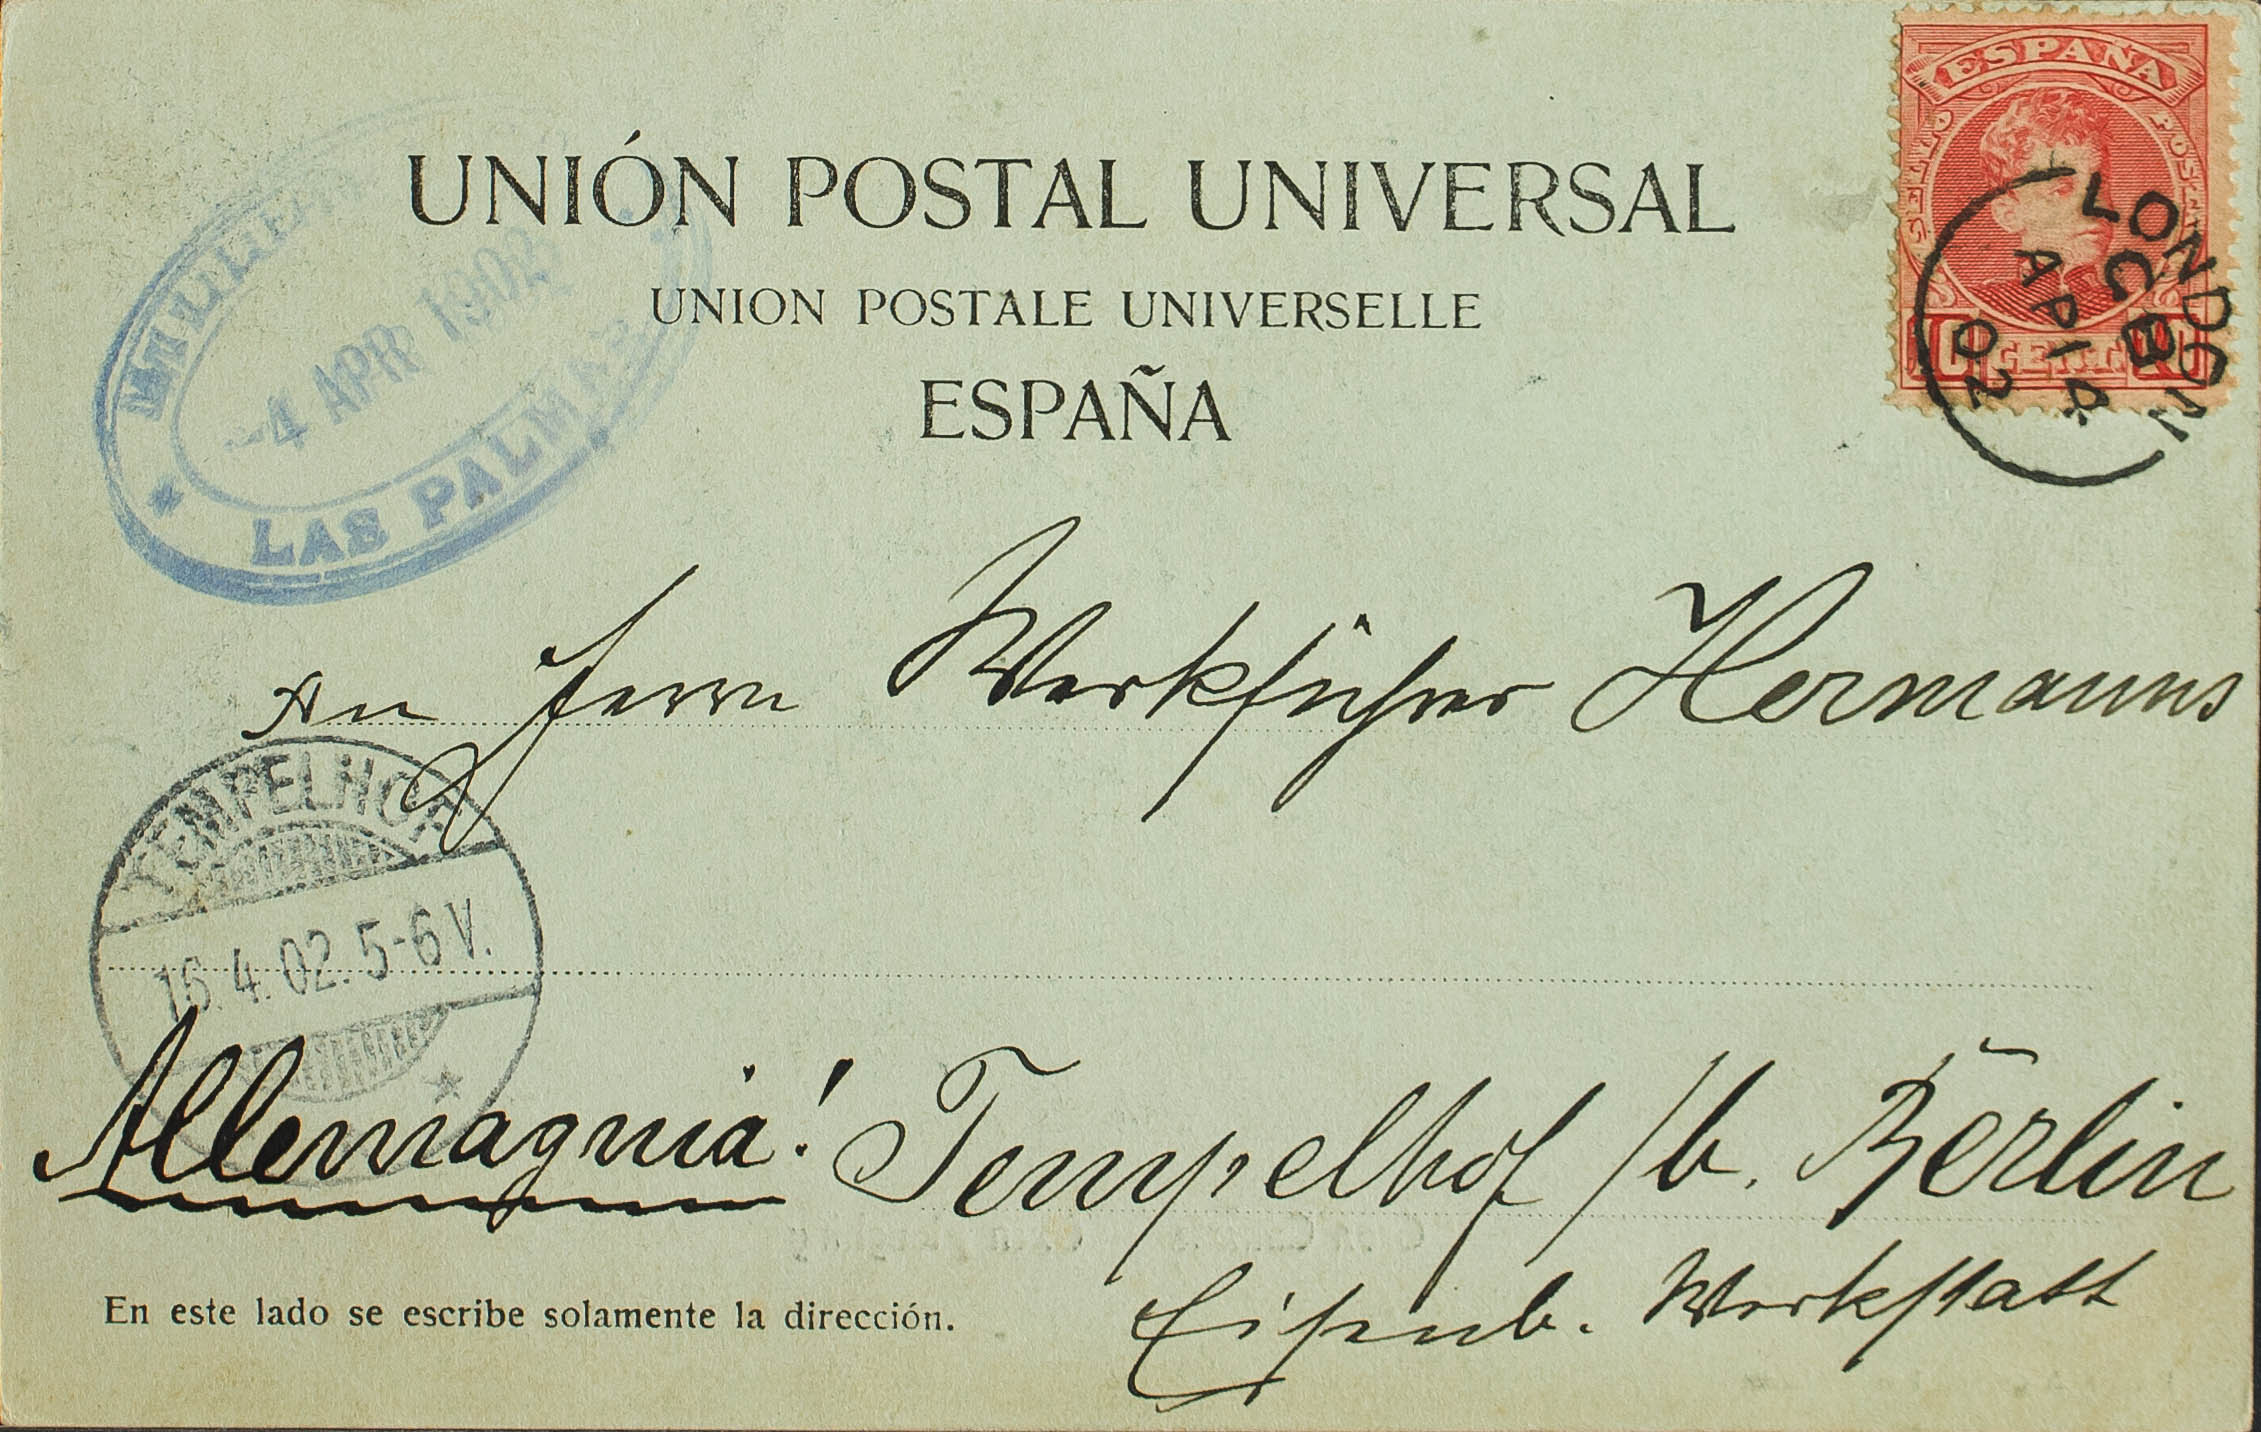 UNIÓN POSTAL UNIVERSAL
UNION POSTALE UNIVERSELLE
ESPAÑA
ESPAÑA
SELLO POSTAL
10 CENT. 10
LONDON
CB
AP 14
02
4 APR 1902
LAS PALMAS
An Herrn Werkführer Hermanns
TEMPELHOF
16.4.02.5-6V.
Allemagnia! Tempelhof /b. Berlin
Eisenb. Werkstatt
En este lado se escribe solamente la dirección.